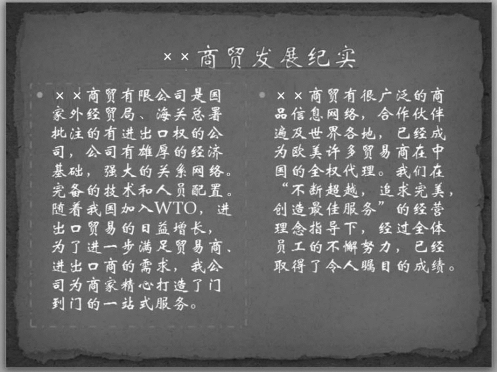 ××商贸发展纪实
××商贸有限公司是国
家外经贸局、海关总署
批注的有进出口权的公
司，公司有雄厚的经济
基础，强大的关系网络。
完备的技术和人员配置。
随着我国加入WTO，进
出口贸易的日益增长，
为了进一步满足贸易商、
进出口商的需求，我公
司为商家精心打造了门
到门的一站式服务。
××商贸有很广泛的商
品信息网络，合作伙伴
遍及世界各地，已经成
为欧美许多贸易商在中
国的全权代理。我们在
“不断超越，追求完美，
创造最佳服务”的经营
理念指导下，经过全体
员工的不懈努力，已经
取得了令人瞩目的成绩。